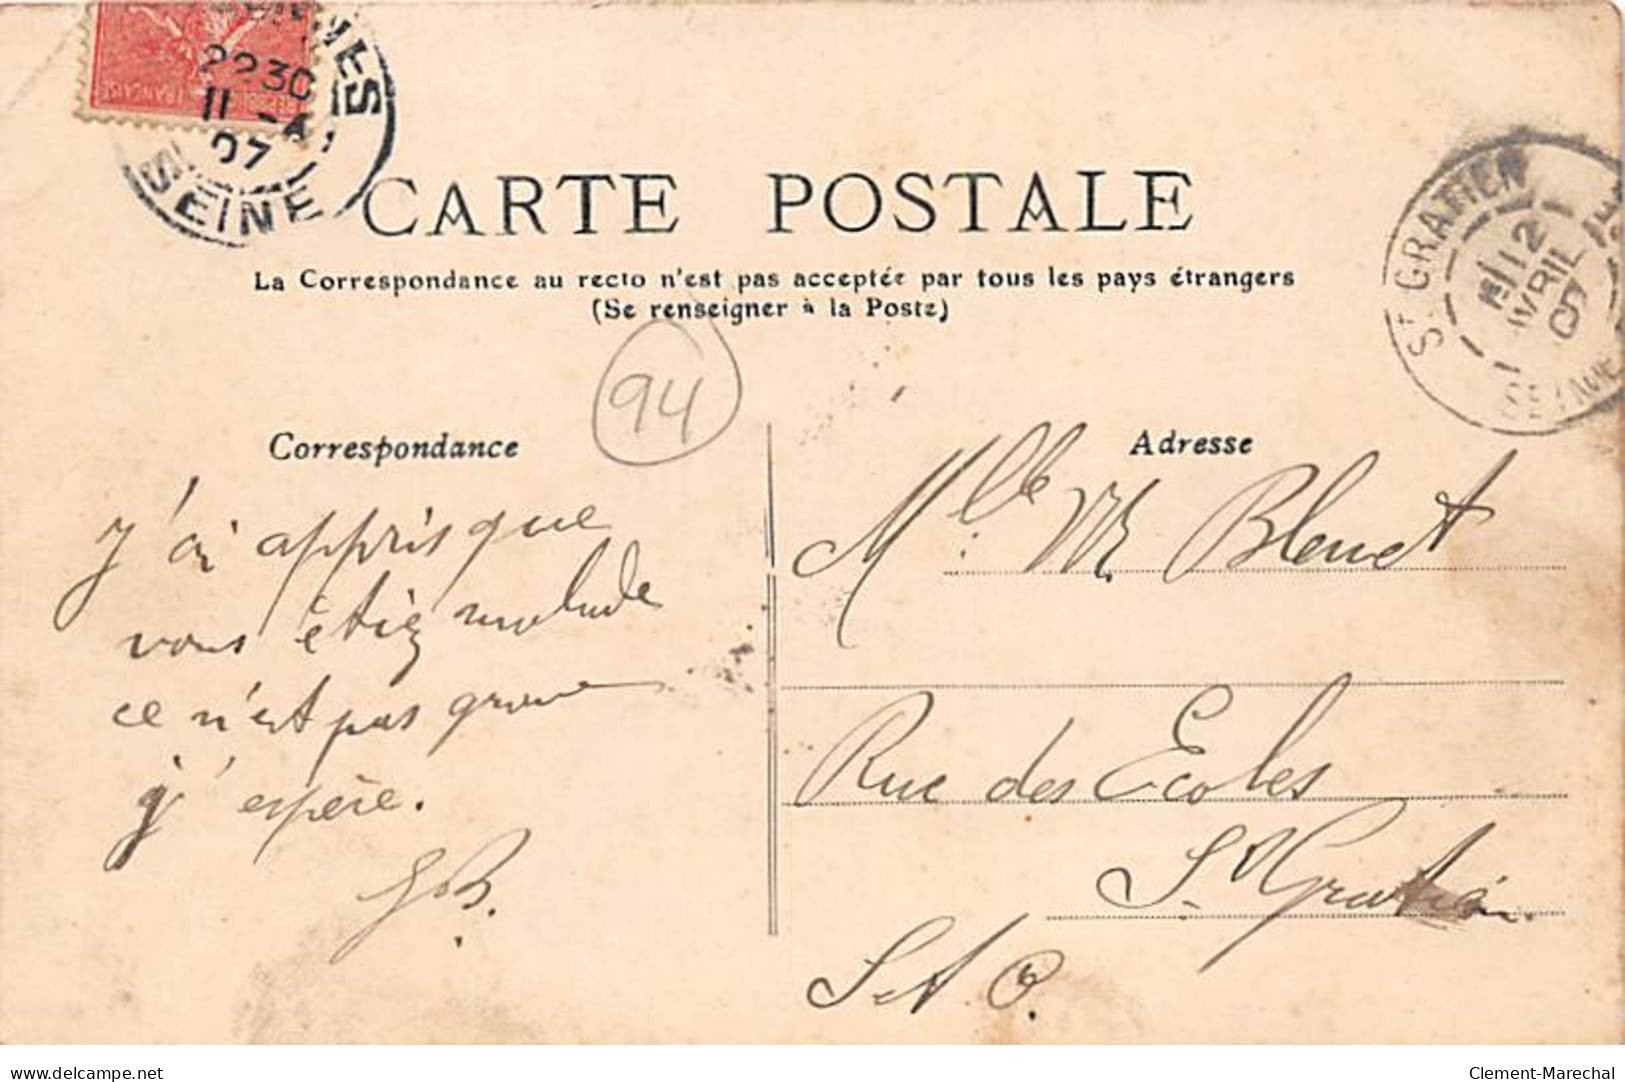 22 30
11 -4
07
SEINE
RÉPUBLIQUE FRANÇAISE
CARTE POSTALE
La Correspondance au recto n'est pas acceptée par tous les pays étrangers
(Se renseigner à la Poste)
St GRATIEN
12
AVRIL
07
94
Correspondance
j'ai appris que
vous étiez malade
ce n'est pas grave
j'espère.
GB.
Adresse
Mlle M. Bleuet
Rue des Ecoles
St Gratien.
S et O.
delcampe.net
Clement-Marechal